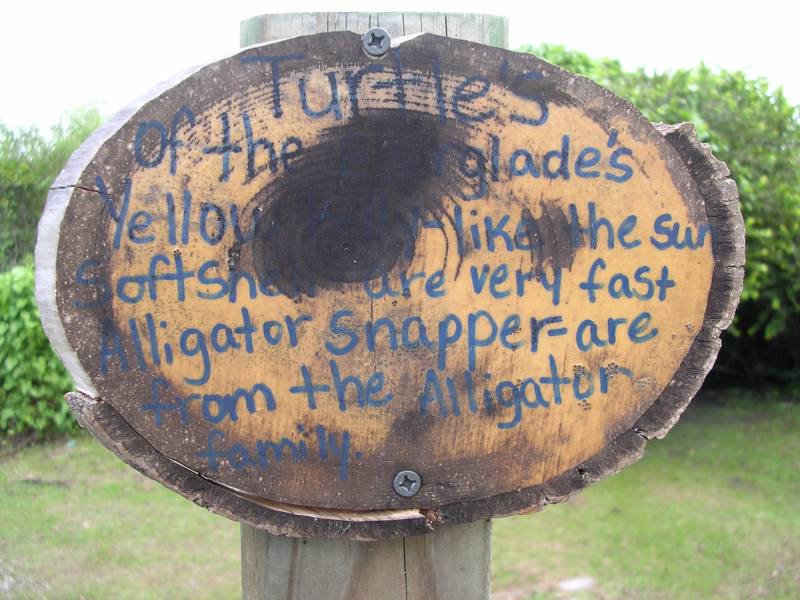 Turtle's
Of the Everglade's
Yellow belly-like the sun
Softshell are very fast
Alligator Snapper-are
from the Alligator
family.